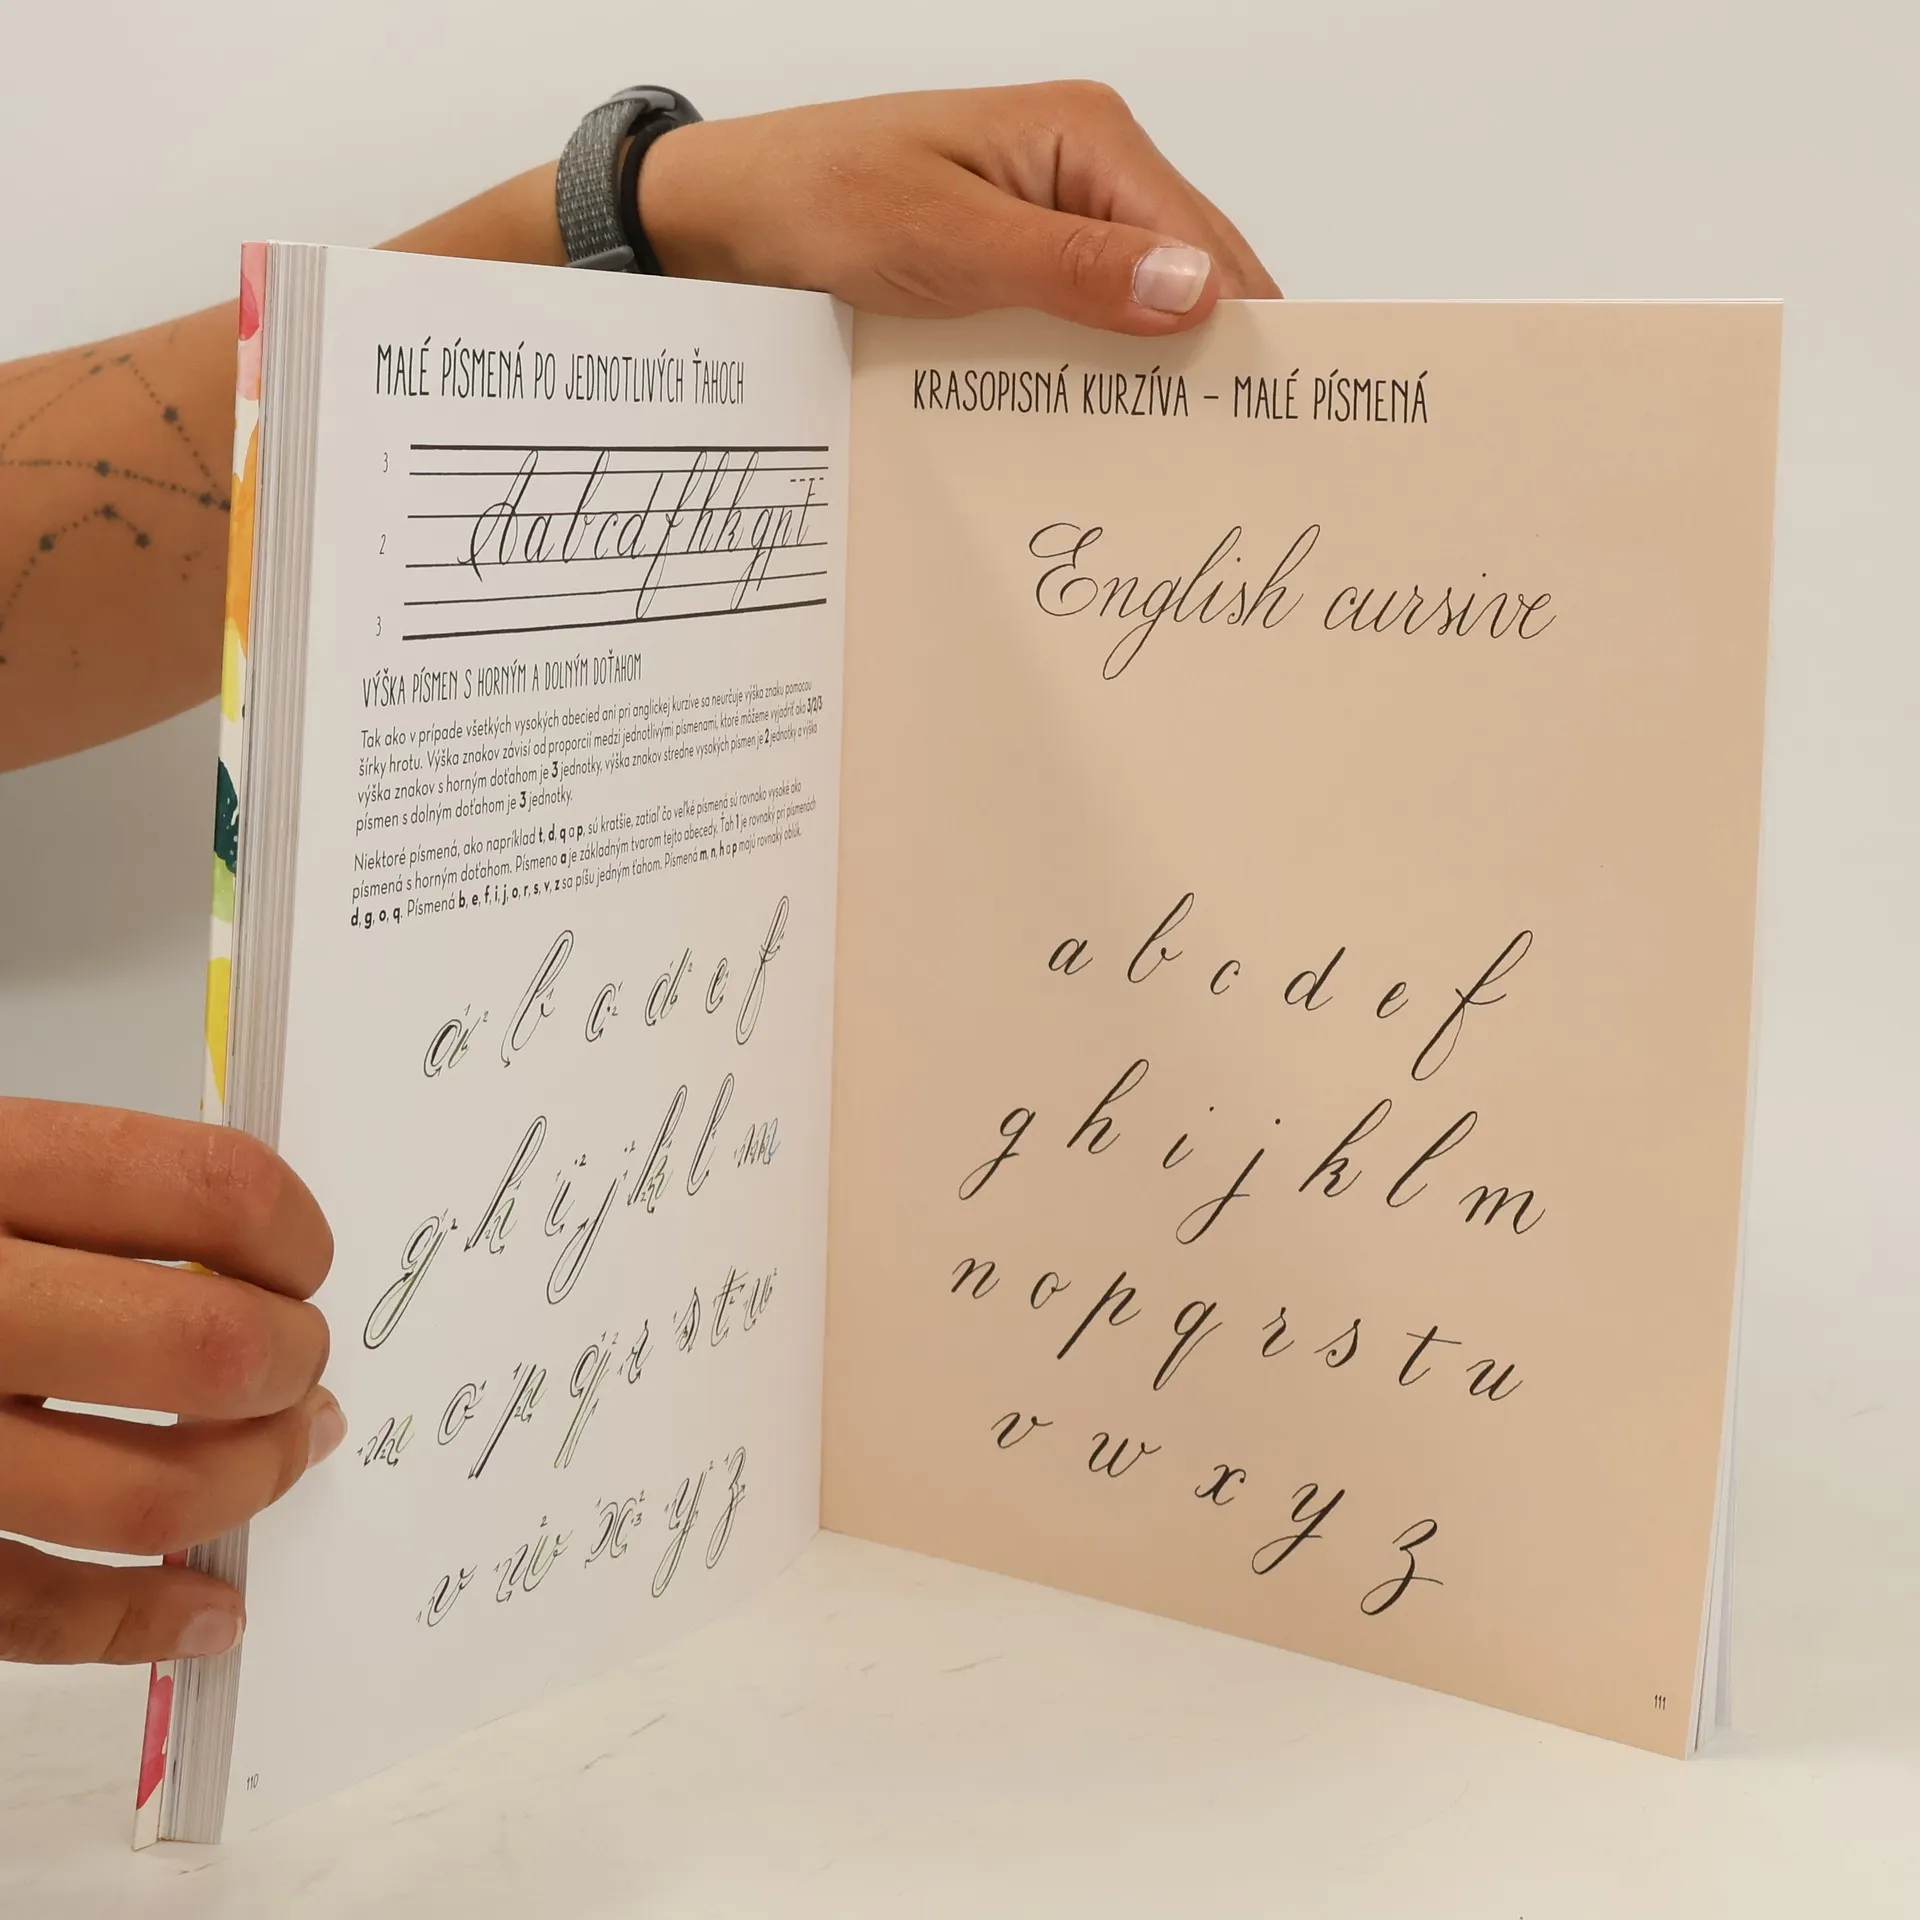 MALÉ PÍSMENÁ PO JEDNOTLIVÝCH ŤAHOCH
3
2
3
Aabcdfhkgpt
VÝŠKA PÍSMEN S HORNÝM A DOLNÝM DOŤAHOM
Tak ako v prípade všetkých vysokých abecied ani pri anglickej kurzíve sa neurčuje výška znaku pomocou
šírky hrotu. Výška znakov závisí od proporcií medzi jednotlivými písmenami, ktoré môžeme vyjadriť ako 3/2/3:
výška znakov s horným doťahom je 3 jednotky, výška znakov stredne vysokých písmen je 2 jednotky a výška
písmen s dolným doťahom je 3 jednotky.
Niektoré písmená, ako napríklad t, d, q a p, sú kratšie, zatiaľ čo veľké písmená sú rovnako vysoké ako
písmená s horným doťahom. Písmeno a je základným tvarom tejto abecedy. Ťah 1 je rovnaký pri písmenách
d, g, o, q. Písmená b, e, f, i, j, o, r, s, v, z sa píšu jedným ťahom. Písmená m, n, h a p majú rovnaký oblúk.
a b c d e f
g h i j k l m
n o p q r s t u
v w x y z
110
KRASOPISNÁ KURZÍVA – MALÉ PÍSMENÁ
English cursive
a b c d e f
g h i j k l m
n o p q r s t u
v w x y z
111